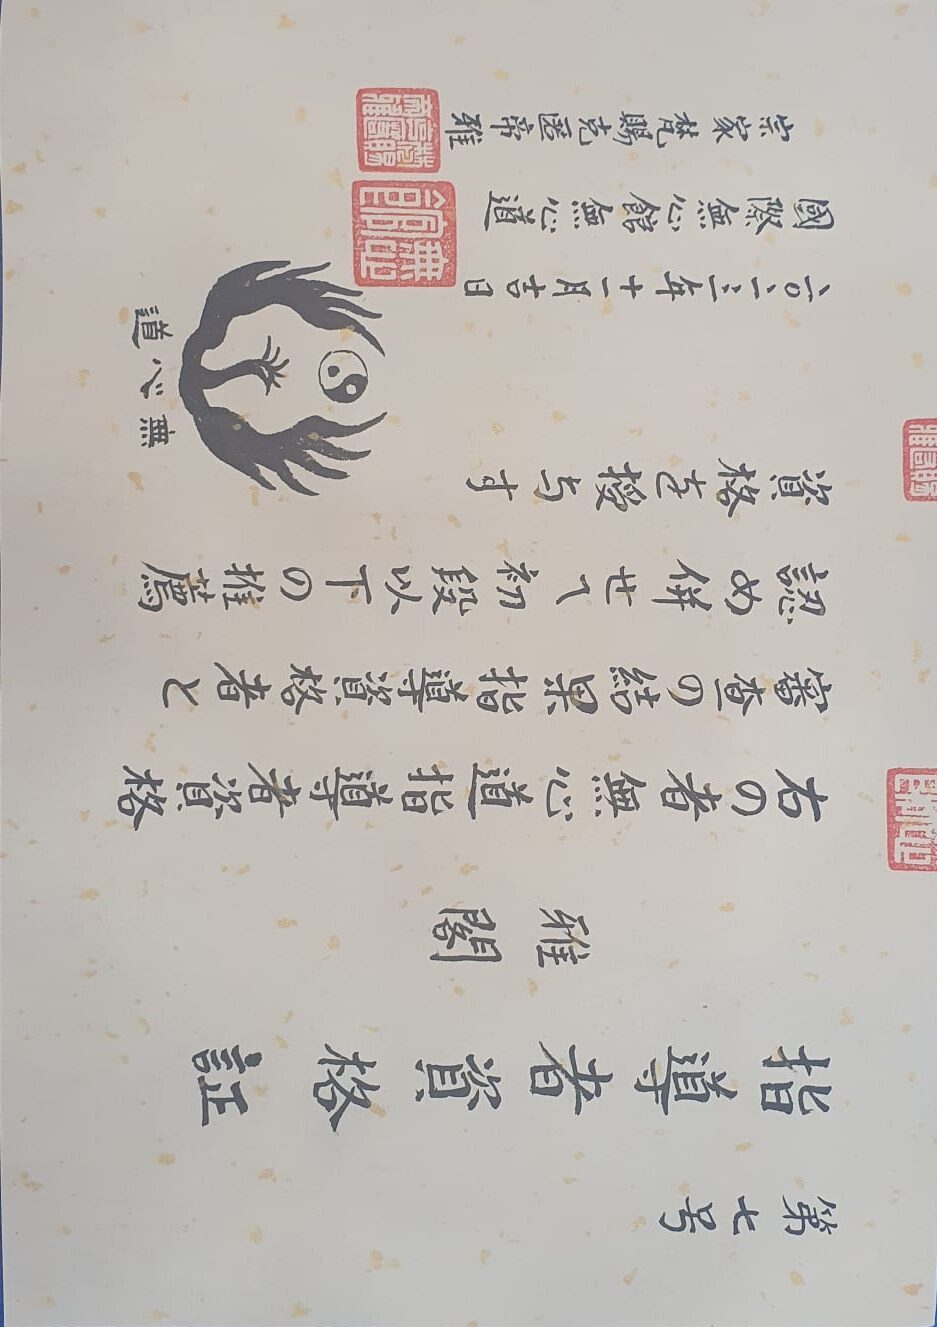 第七号
指導者資格証
雅閣
右の者無心道指導者資格
審査の結果指導資格者と
認め併せて初段以下の推薦
資格を授与す
二〇一三年十一月吉日
國際無心館無心道
宗家梵賜克匯帝雅
無心道